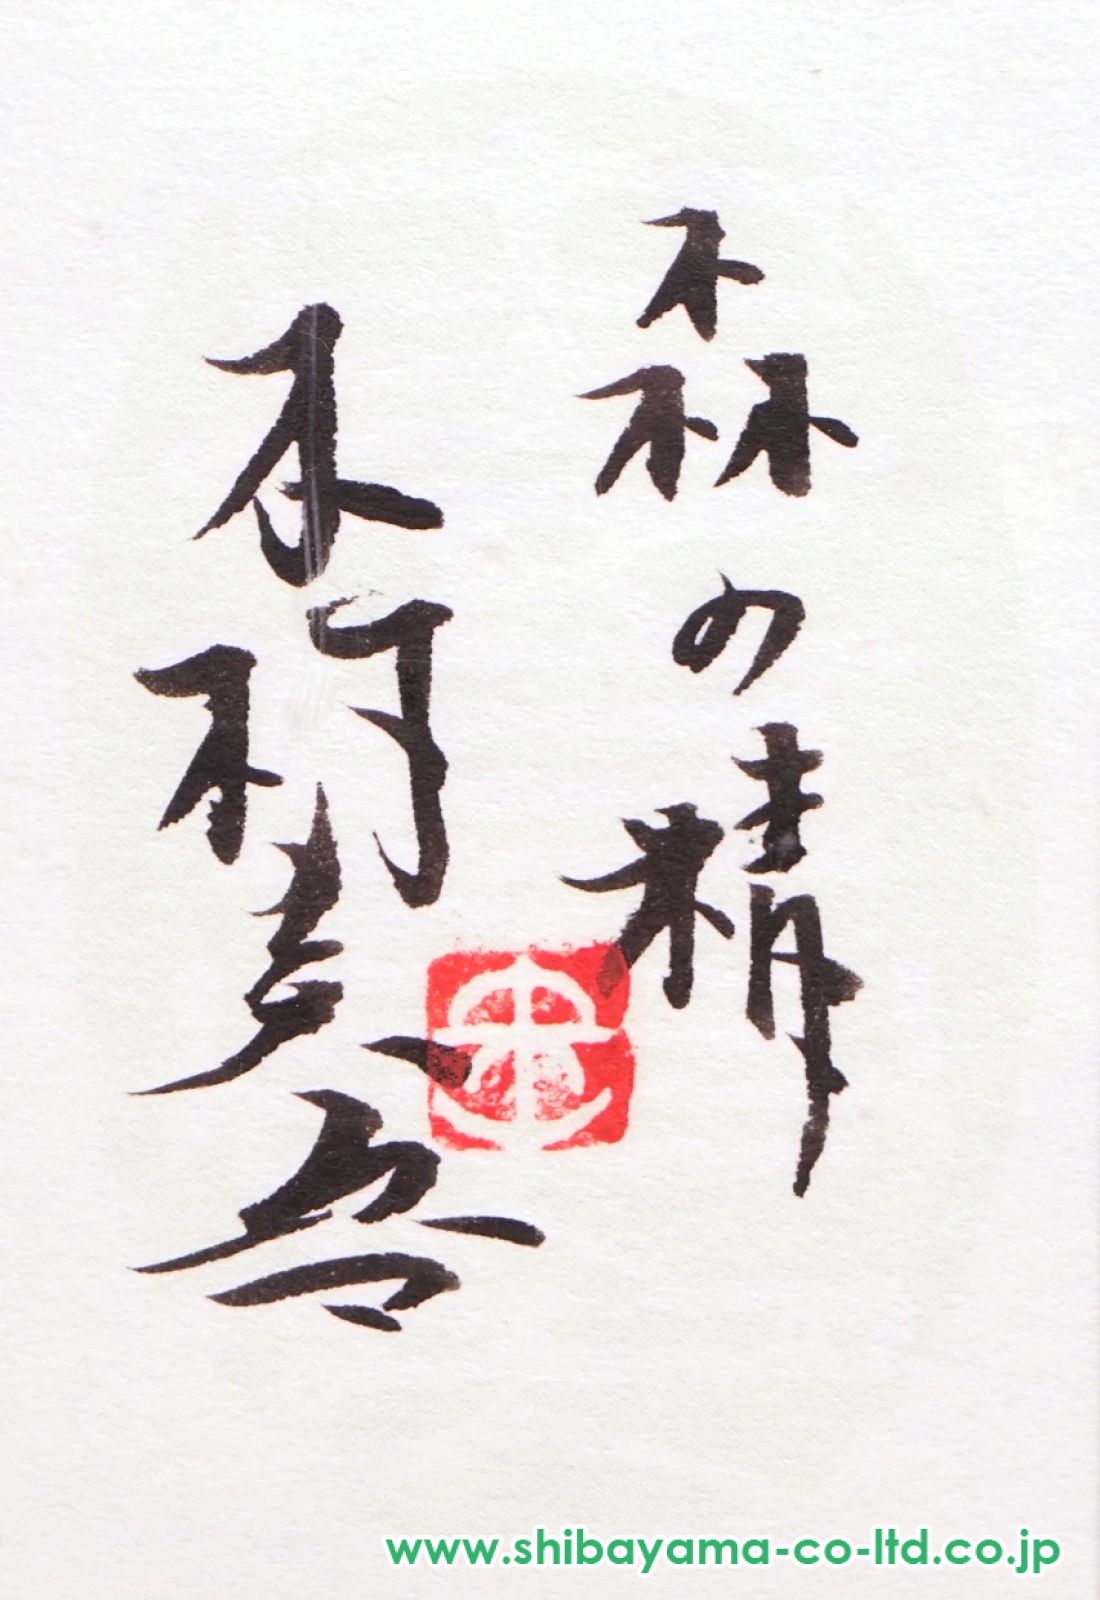 森の精
木村
www.shibayama-co-ltd.co.jp